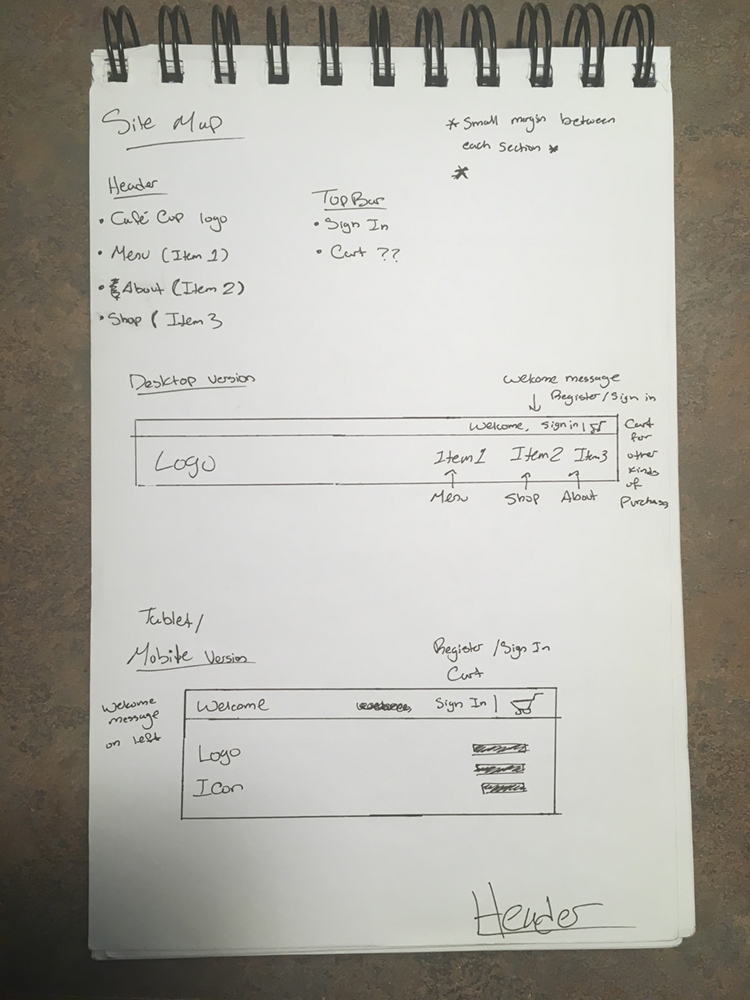 Site Map
* Small margin between
each section *
*
Header
• Café Cup logo
• Menu (Item 1)
• About (Item 2)
• Shop ( Item 3
Top Bar
• Sign In
• Cart ??
Desktop version
Welcome message
Register/Sign in
Welcome, sign in |
Logo
Item 1 Item 2 Item 3
Menu Shop About
Cart
for
other
kinds
of
Purchase
Tablet/
Mobile Version
Register / Sign In
Cart
Welcome
message
on Left
Welcome
Sign In |
Logo
Icon
Header